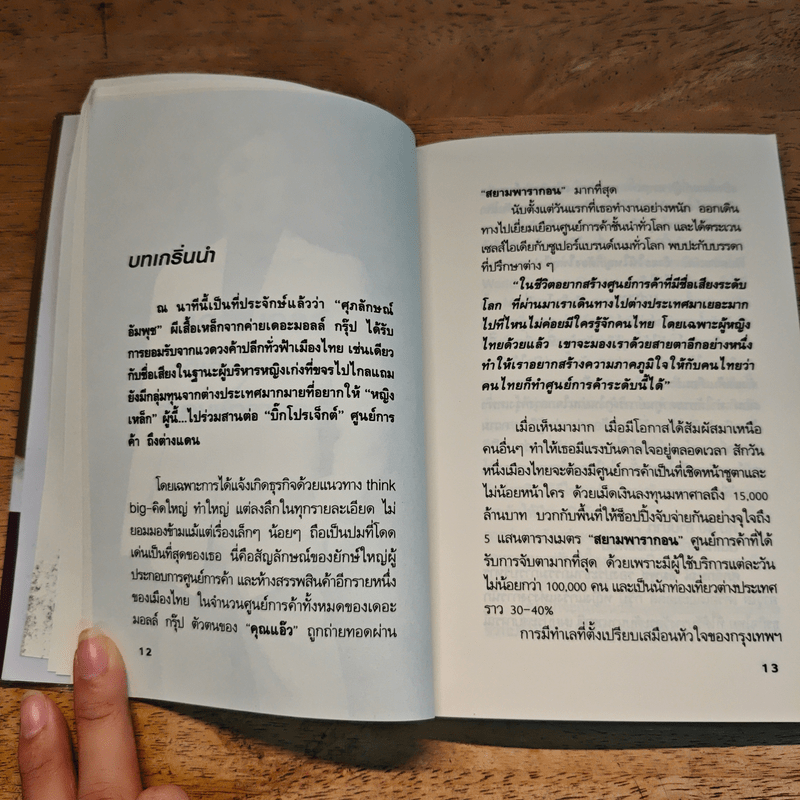 บทเกริ่นนำ
ณ นาทีนี้เป็นที่ประจักษ์แล้วว่า “ศุภลักษณ์
อัมพุช” ผีเสื้อเหล็กจากค่ายเดอะมอลล์ กรุ๊ป ได้รับ
การยอมรับจากแวดวงค้าปลีกทั่วฟ้าเมืองไทย เช่นเดียว
กับชื่อเสียงในฐานะผู้บริหารหญิงเก่งที่ขจรไปไกลแถม
ยังมีกลุ่มทุนจากต่างประเทศมากมายที่อยากให้ “หญิง
เหล็ก” ผู้นี้...ไปร่วมสานต่อ “บิ๊กโปรเจ็กต์” ศูนย์การ
ค้า ถึงต่างแดน
โดยเฉพาะการได้แจ้งเกิดธุรกิจด้วยแนวทาง think
big-คิดใหญ่ ทำใหญ่ แต่ลงลึกในทุกรายละเอียด ไม่
ยอมมองข้ามแม้แต่เรื่องเล็กๆ น้อยๆ ถือเป็นปมที่โดด
เด่นเป็นที่สุดของเธอ นี่คือสัญลักษณ์ของยักษ์ใหญ่ผู้
ประกอบการศูนย์การค้า และห้างสรรพสินค้าอีกรายหนึ่ง
ของเมืองไทย ในจำนวนศูนย์การค้าทั้งหมดของเดอะ
มอลล์ กรุ๊ป ตัวตนของ “คุณแอ๊ว” ถูกถ่ายทอดผ่าน
12
“สยามพารากอน” มากที่สุด
นับตั้งแต่วันแรกที่เธอทำงานอย่างหนัก ออกเดิน
ทางไปเยี่ยมเยือนศูนย์การค้าชั้นนำทั่วโลก และได้ตระเวน
เซลส์ไอเดียกับซูเปอร์แบรนด์เนมทั่วโลก พบปะกับบรรดา
ที่ปรึกษาต่าง ๆ
“ในชีวิตอยากสร้างศูนย์การค้าที่มีชื่อเสียงระดับ
โลก ที่ผ่านมาเราเดินทางไปต่างประเทศมาเยอะมาก
ไปที่ไหนไม่ค่อยมีใครรู้จักคนไทย โดยเฉพาะผู้หญิง
ไทยด้วยแล้ว เขาจะมองเราด้วยสายตาอีกอย่างหนึ่ง
ทำให้เราอยากสร้างความภาคภูมิใจให้กับคนไทยว่า
คนไทยก็ทำศูนย์การค้าระดับนี้ได้”
เมื่อเห็นมามาก เมื่อมีโอกาสได้สัมผัสมาเหนือ
คนอื่นๆ ทำให้เธอมีแรงบันดาลใจอยู่ตลอดเวลา สักวัน
หนึ่งเมืองไทยจะต้องมีศูนย์การค้าเป็นที่เชิดหน้าชูตาและ
ไม่น้อยหน้าใคร ด้วยเม็ดเงินลงทุนมหาศาลถึง 15,000
ล้านบาท บวกกับพื้นที่ให้ช็อปปิ้งจับจ่ายกันอย่างจุใจถึง
5 แสนตารางเมตร “สยามพารากอน” ศูนย์การค้าที่ได้
รับการจับตามากที่สุด ด้วยเพราะมีผู้ใช้บริการแต่ละวัน
ไม่น้อยกว่า 100,000 คน และเป็นนักท่องเที่ยวต่างประเทศ
ราว 30-40%
การมีทำเลที่ตั้งเปรียบเสมือนหัวใจของกรุงเทพฯ
13